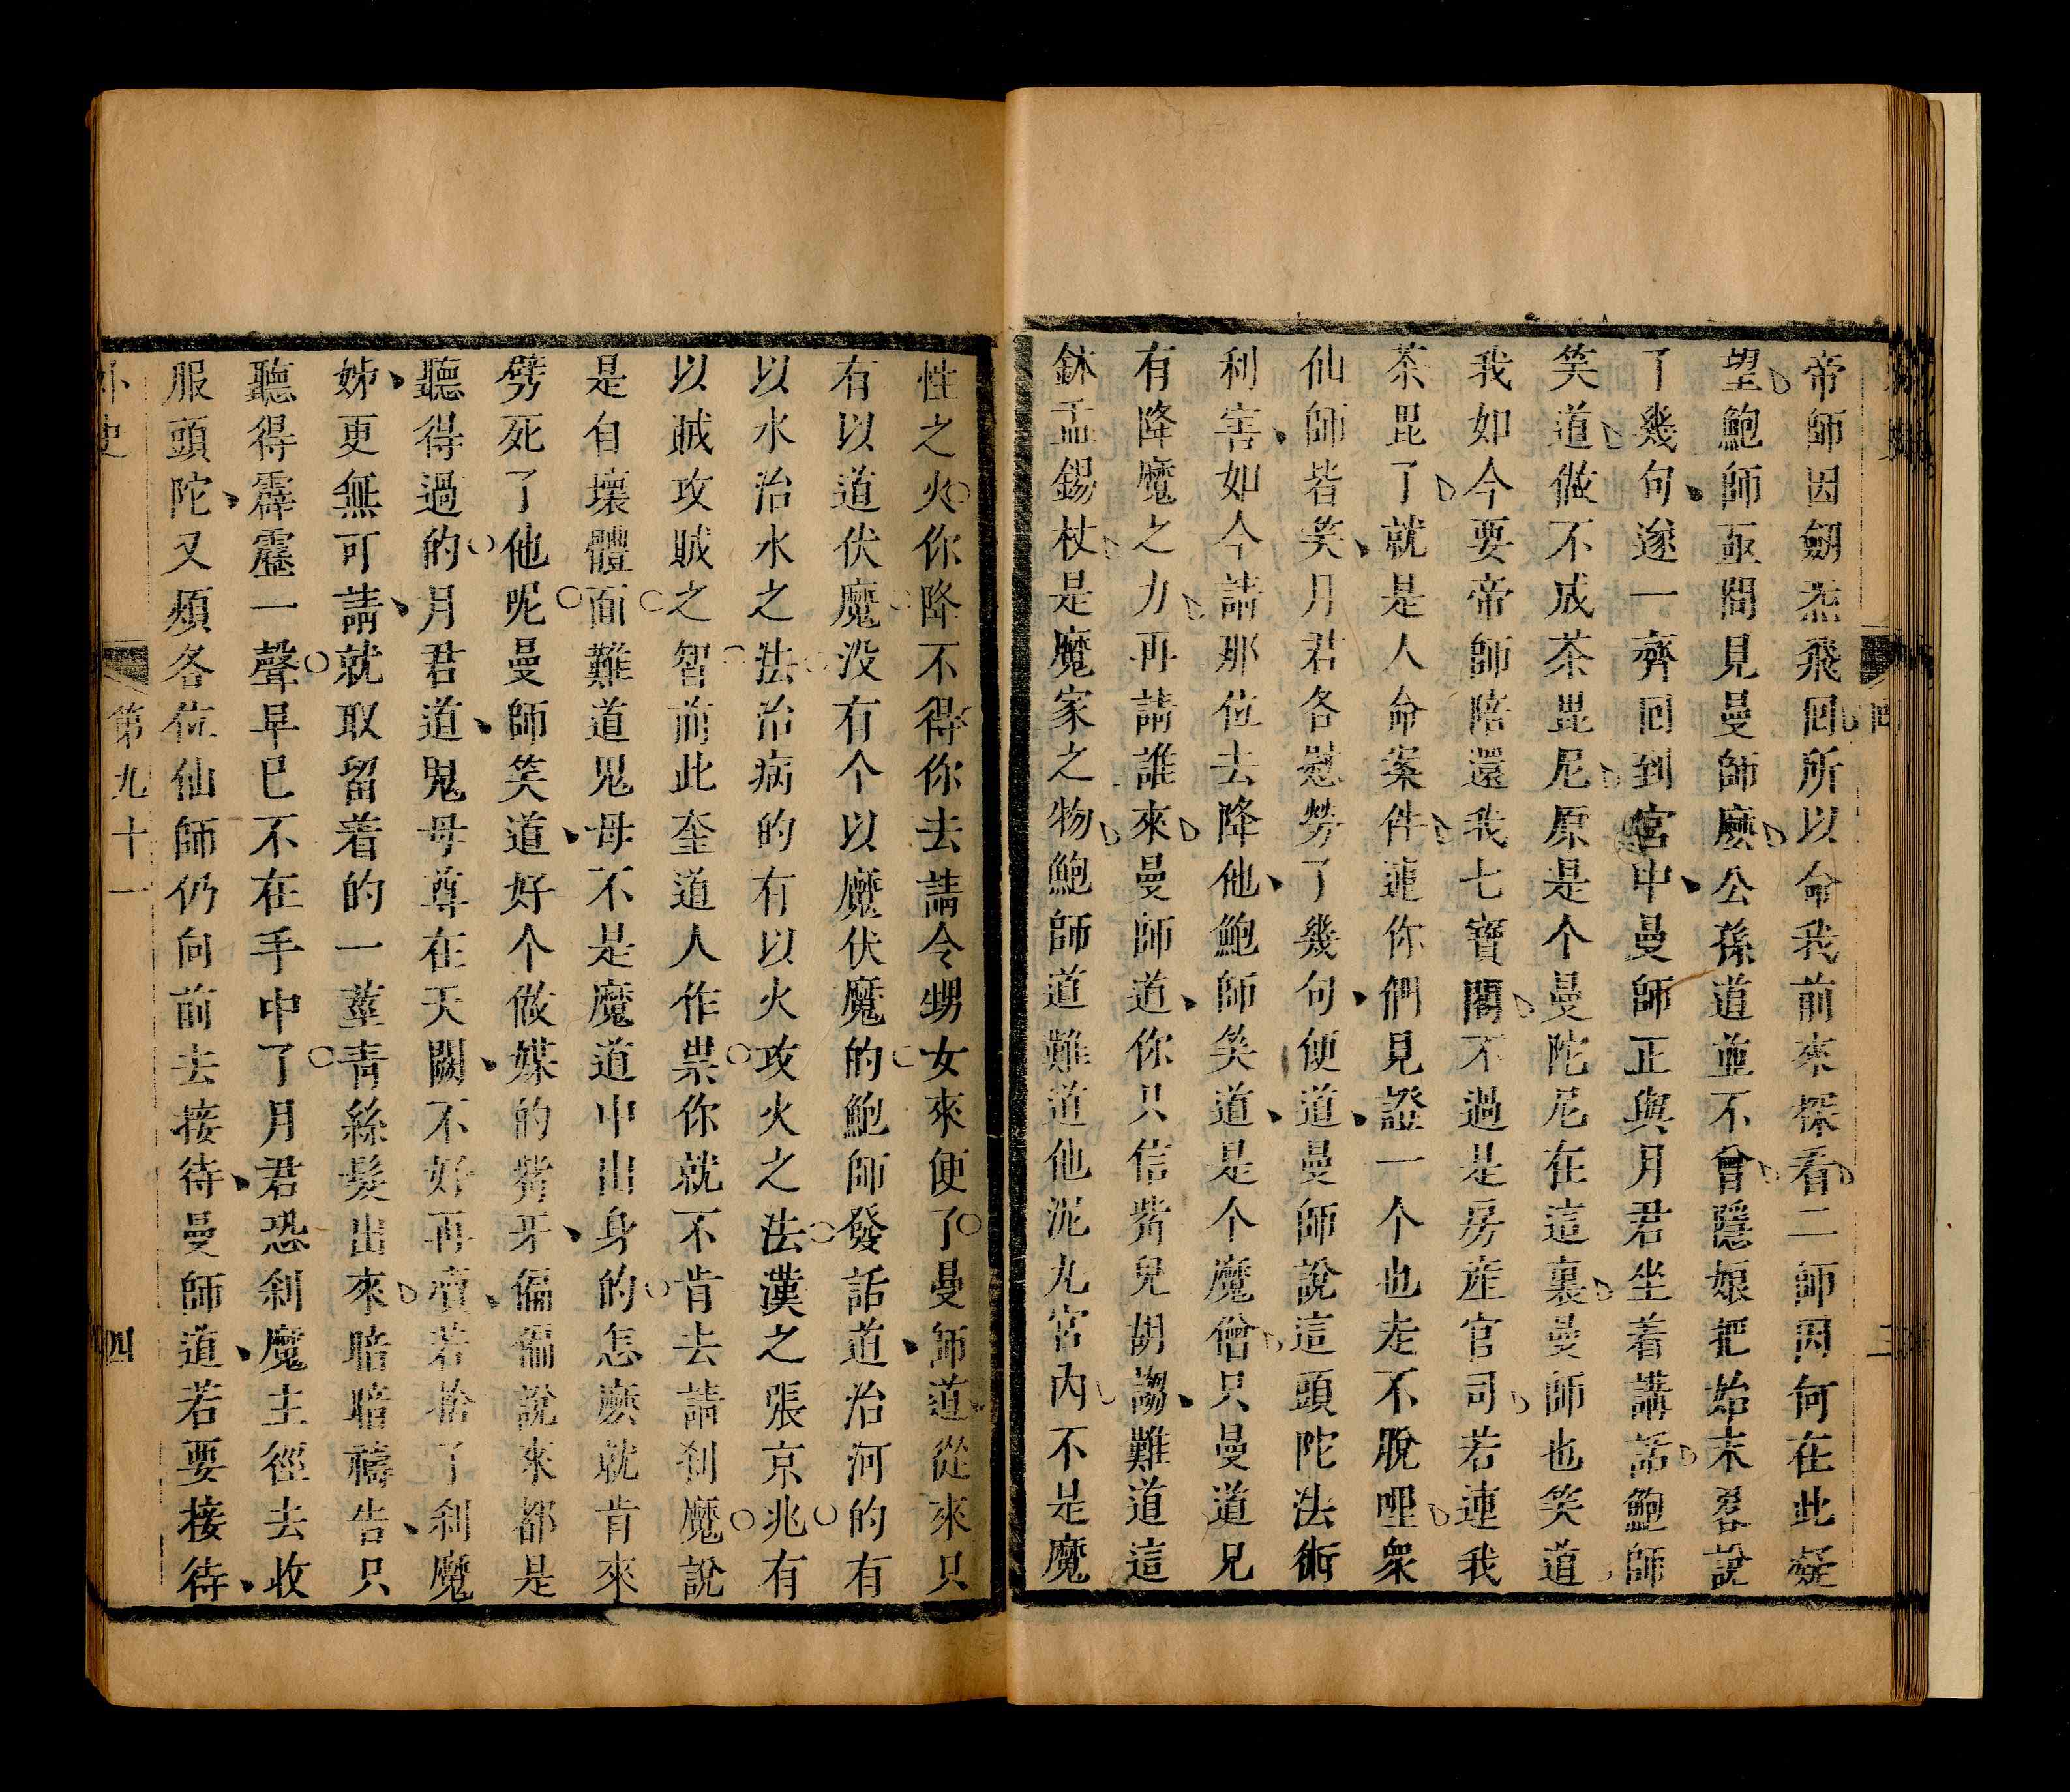 帝師因劒炁飛回所以命我前來探看二師因何在此凝
望鮑師亟問見曼師麽公孫道並不曾隱娘把始末畧說
了幾句遂一齊回到宮中曼師正與月君坐着講話鮑師
笑道做不成茶毘尼原是个曼陀尼在這裏曼師也笑道
我如今要帝師陪還我七寶閣不過是房産官司若連我
茶毘了就是人命案件連你們見證一个也走不脫哩衆
仙師皆笑月君各慰勞了幾句便道曼師說這頭陀法術
利害如今請那位去降他鮑師笑道是个魔僧只曼道兄
有降魔之力再請誰來曼師道你只信觜兒胡謅難道這
鉢盂錫杖是魔家之物鮑師道難道他泥九宮內不是魔
性之火你降不得你去請令甥女來便了曼師道從來只
有以道伏魔没有个以魔伏魔的鮑師發話道治河的有
以水治水之法治病的有以火攻火之法漢之張京兆有
以賊攻賊之智前此奎道人作祟你就不肯去請刹魔說
是自壞體面難道鬼母不是魔道中出身的怎麽就肯來
劈死了他呢曼師笑道好个做媒的觜牙偏偏說來都是
聽得過的月君道鬼母尊在天闕不好再凟若捨了刹魔
姊更無可請就取留着的一莖青絲髮出來暗暗禱告只
聽得霹靂一聲早已不在手中了月君恐刹魔主徑去收
服頭陀又煩各位仙師仍向前去接待曼師道若要接待
外史
第九十一
四